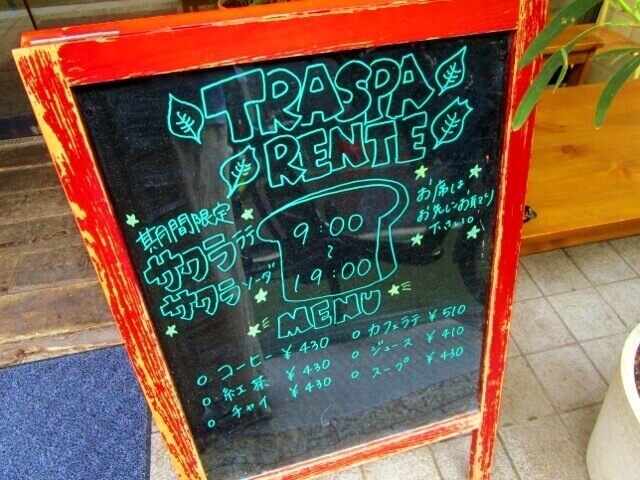 TRASPA
RENTE
期間限定
サクララテ
サクラソーダ
9:00
～
19:00
お席は、
お先にお取り
下さい。
MENU
○ コーヒー ¥430
○ 紅茶 ¥430
○ チャイ ¥430
○ カフェラテ ¥510
○ ジュース ¥410
○ スープ ¥430